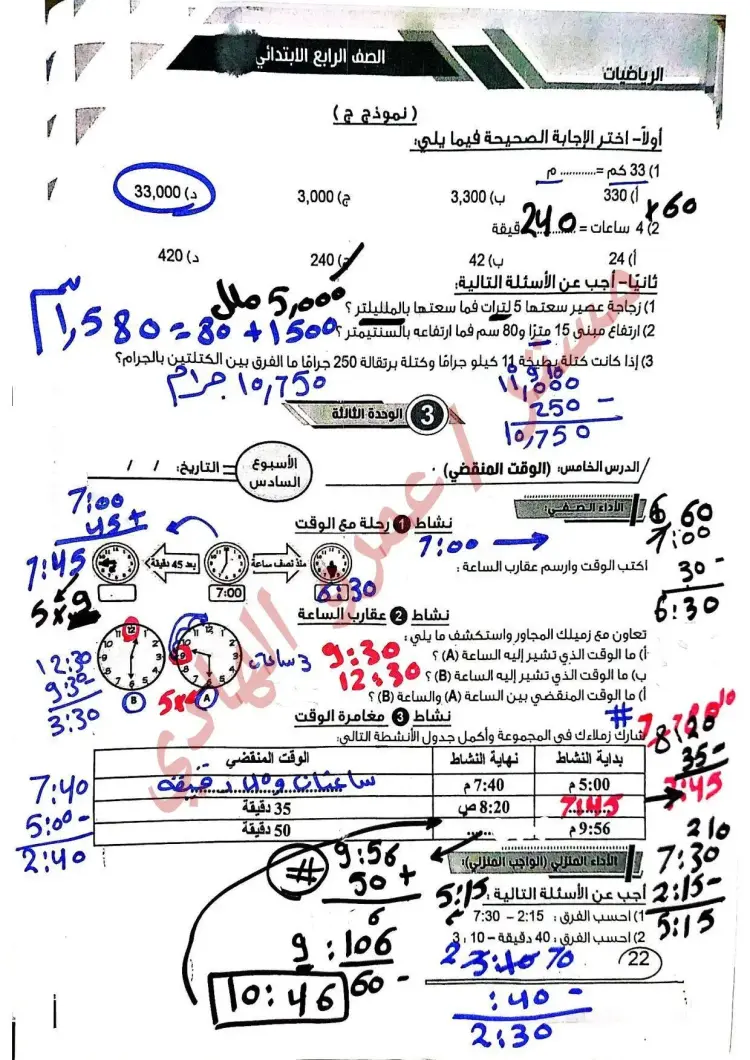 الصف الرابع الابتدائي
الرياضيات
(نموذج ج)
أولاً- اختر الإجابة الصحيحة فيما يلي:
1) 33 كم = ............ م
أ) 330 ب) 3,300 ج) 3,000 د) 33,000
×60
2) 4 ساعات = 240 دقيقة
أ) 24 ب) 42 ج) 240 د) 420
ثانيًا- أجب عن الأسئلة التالية:
1) زجاجة عصير سعتها 5 لترات فما سعتها بالملليلتر ؟ 5,000 ملل
2) ارتفاع مبنى 15 مترًا و80 سم فما ارتفاعه بالسنتيمتر ؟ 1500 + 80 = 1,580 سم
3) إذا كانت كتلة بطيخة 11 كيلو جرامًا وكتلة برتقالة 250 جرامًا ما الفرق بين الكتلتين بالجرام؟
10,750 جرام
0 9 10
11,000
250 -
10,750
3 الوحدة الثالثة
الدرس الخامس: (الوقت المنقضي)
الأسبوع السادس
التاريخ: / /
الأداء الصفي:
نشاط 1 رحلة مع الوقت
اكتب الوقت وارسم عقارب الساعة :
7:00
6 60
7:00
30 -
6:30
7:00
45 +
7:45
5 × 9
منذ نصف ساعة
بعد 45 دقيقة
7:00
6:30
نشاط 2 عقارب الساعة
تعاون مع زميلك المجاور واستكشف ما يلي :
أ) ما الوقت الذي تشير إليه الساعة (A) ؟ 9:30
ب) ما الوقت الذي تشير إليه الساعة (B) ؟ 12:30
أ) ما الوقت المنقضي بين الساعة (A) والساعة (B) ؟
3 ساعات
B
A
12:30
9:30
3:30
نشاط 3 مغامرة الوقت
#
شارك زملاءك في المجموعة وأكمل جدول الأنشطة التالي:
بداية النشاط نهاية النشاط الوقت المنقضي
5:00 م 7:40 م ساعتان و 40 دقيقة
7:45 8:20 ص 35 دقيقة
9:56 م ...... 50 دقيقة
8:20
35 -
7:45
7:40
5:00 -
2:40
#
9:56
50 +
9:106
60 -
10:46
الأداء المنزلي (الواجب المنزلي):
أجب عن الأسئلة التالية :
1) احسب الفرق : 2:15 – 7:30
5:15
2) احسب الفرق : 40 دقيقة – 10 : 3
7:30
2:15 -
5:15
2 70
3:10
:40 -
2:30
22
مستر / عمرو الهادي